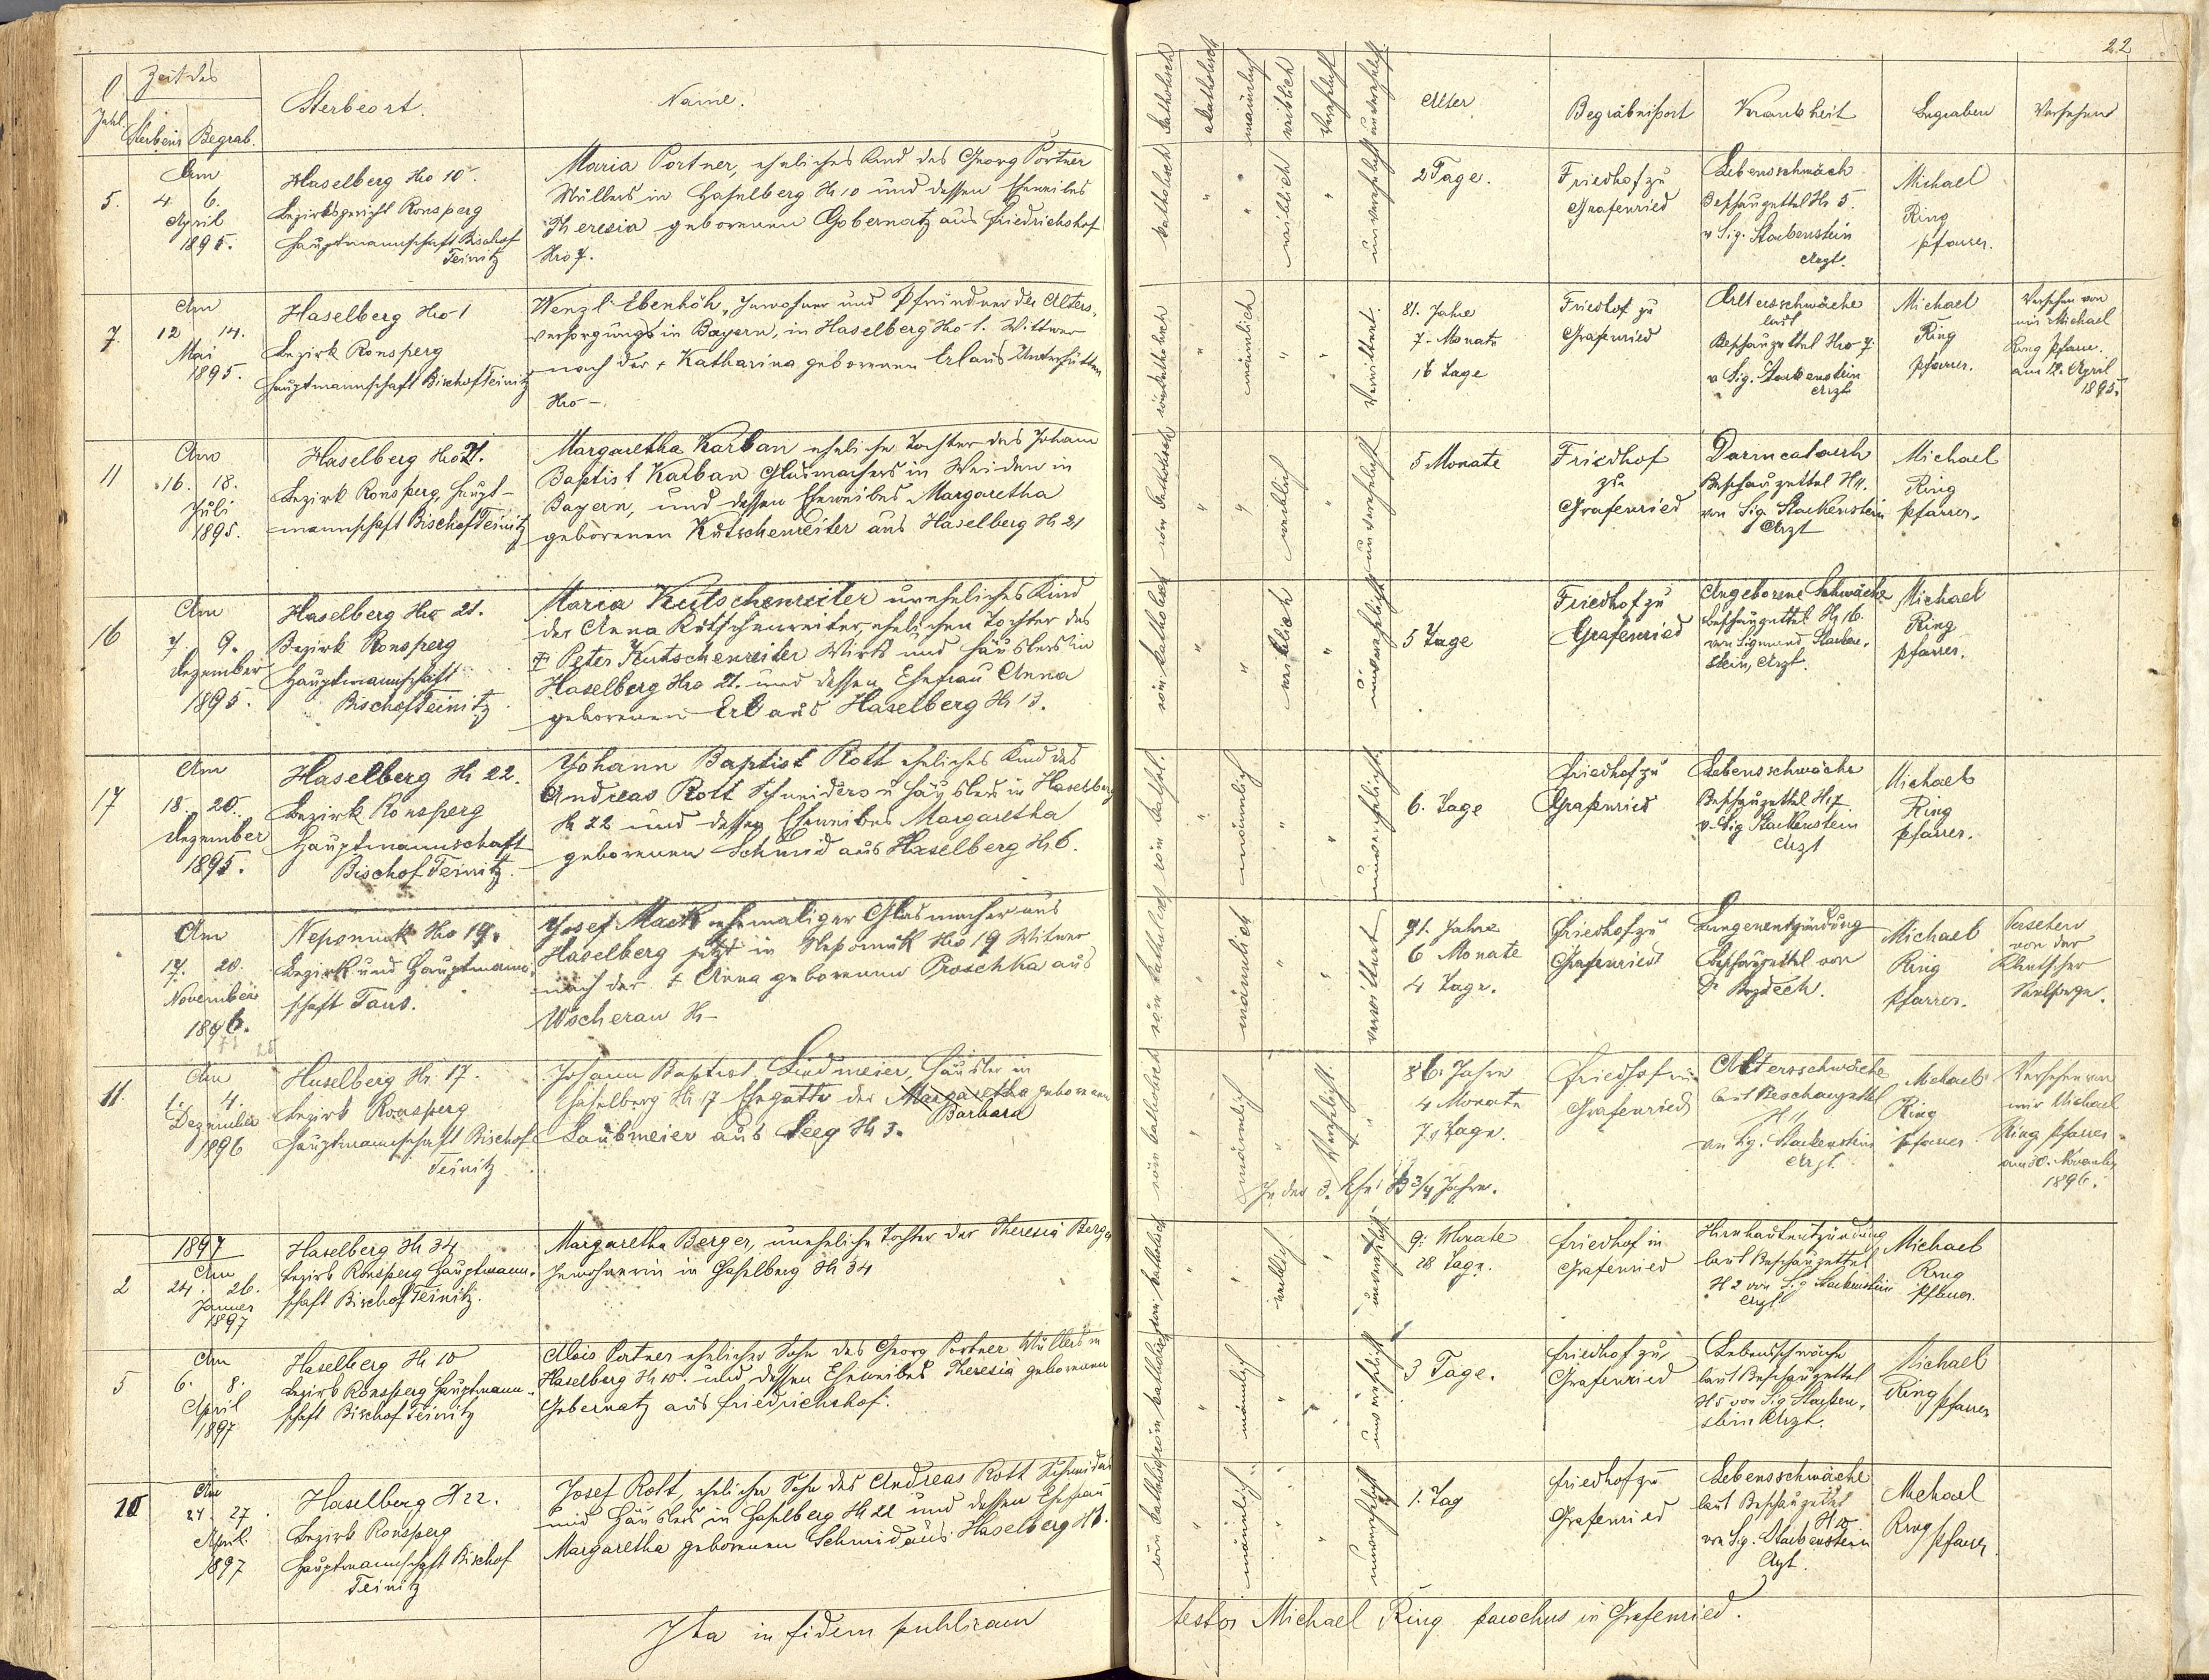 22
Zeit des
Zahl
Sterbens Begrab.
Sterbeort.
Name.
katholisch
akatholisch
männlich
weiblich
verehelicht
unverehelicht
Alter
Begräbnißort
Krankheit
Begraben
Versehen
5.
Am
4. 6.
April
1895.
Haselberg Nro 10.
Bezirksgericht Ronsperg
Hauptmannschaft Bischof
Teinitz
Maria Portner, eheliches Kind des Georg Portner
Müllers in Haselberg N 10 und dessen Eheweibes
Theresia geborenen Gobernatz aus Friedrichshof
Nro 7.
katholisch
weiblich
unverehelicht
2 Tage.
Friedhof zu
Grafenried
Lebensschwäche
Beschauzettel N 5.
v Sig. Stackenstein
Arzt.
Michael
Ring
Pfarrer.
7.
Am
12 14.
Mai
1895.
Haselberg Nro 1
Bezirk Ronsperg
Hauptmannschaft Bischof Teinitz
Wenzl Ebenhöh, Inwohner und Pfründner der Alters-
versorgungs in Bayern, in Haselberg Nro 1. Wittwer
nach der + Katharina geborenen Erl aus Unterhütten
Nro –
röm katholisch
männlich
Verwittwet.
81. Jahre
7. Monate
16 Tage
Friedhof zu
Grafenried
Altersschwäche
laut
Beschauzettel Nro 7.
v Sig. Stackenstein
Arzt
Michael
Ring
Pfarrer.
Versehen von
mir Michael
Ring Pfarrer.
am 12. April
1895.
11
Am
16. 18.
Juli
1895.
Haselberg Nro 21.
Bezirk Ronsperg, Haupt-
mannschaft Bischof Teinitz
Margaretha Karban eheliche Tochter des Johann
Baptist Karban Glasmachers in Weiden in
Bayern, und dessen Eheweibes Margaretha
geborenen Kutschenreiter aus Haselberg N 21
röm katholisch
weiblich
unverehelicht
5 Monate
Friedhof
zu
Grafenried
Darmcatarrh
Beschauzettel N 11.
von Sig. Stackenstein
Arzt
Michael
Ring
Pfarrer.
16
Am
7. 9.
Dezember
1895.
Haselberg Nro 21.
Bezirk Ronsperg
Hauptmannschaft
Bischof Teinitz
Maria Kutschenreiter uneheliches Kind
der Anna Kutschenreiter, ehelichen Tochter des
+ Peter Kutschenreiter Wirts und Häuslers in
Haselberg Nro 21. und dessen Ehefrau Anna
geborenen Erl aus Haselberg N 13.
röm katholisch
weiblich
unverehelicht
5 Tage
Friedhof zu
Grafenried
Angeborene Schwäche
Beschauzettel N 16.
von Sigmund Stacken-
stein, Arzt.
Michael
Ring
Pfarrer.
17
Am
18. 20.
Dezember
1895.
Haselberg N 22.
Bezirk Ronsperg
Hauptmannschaft
Bischof Teinitz.
Johann Baptist Rott eheliches Kind des
Andreas Rott Schneiders u Häuslers in Haselberg
N 22 und dessen Eheweibes Margaretha
geborenen Schmid aus Haselberg N 6.
röm kathol.
männlich
unverehelicht
6. Tage
Friedhof zu
Grafenried
Lebensschwäche
Beschauzettel N 17.
v. Sig Stackenstein
Arzt
Michael
Ring
Pfarrer.
Am
17. 20.
November
1896.
Nepomuk Nro 19.
Bezirk und Hauptmann-
schaft Taus.
Josef Mack ehemaliger Glasmacher aus
Haselberg jetzt in Nepomuk Nro 19 Witwer
nach der + Anna geborenen Proschka aus
Wscherau N –
röm katholisch
männlich
verwittwet
71. Jahre
6 Monate
4 Tage.
Friedhof zu
Grafenried
Lungenentzündung
Beschauzettel von
Dr
Michael
Ring
Pfarrer.
Versehen
von der
Klentscher
Seelsorge.
11.
Am
1. 4.
Dezember
1896
Haselberg N. 17.
Bezirk Ronsperg
Hauptmannschaft Bischof
Teinitz
Johann Baptist Lindmeier, Häusler in
Haselberg N 17 Ehegatte der Margaretha geborenen
Barbara
Laubmeier aus Seeg N 3.
röm katholisch
männlich
Verehelicht.
In der 3. Ehe 13 3/4 Jahre.
86. Jahre
4 Monate
7 Tage.
Friedhof in
Grafenried
Altersschwäche
laut Beschauzettel
N 11
von Sig. Stackenstein
Arzt.
Michael
Ring
Pfarrer.
Versehen von
mir Michael
Ring Pfarrer
am 30. November
1896.
2
1897
Am
24. 26.
Jänner
1897
Haselberg N 34
Bezirk Ronsperg Hauptmann-
schaft Bischof Teinitz.
Margaretha Berger, uneheliche Tochter der Theresia Berger
Inwohnerin in Haselberg N 34
röm katholisch
weiblich
unverehelicht
9. Monate
28 Tage.
Friedhof in
Grafenried
Hirnhautentzündung
laut Beschauzettel
N 2 von Sig Stackenstein
Arzt
Michael
Ring
Pfarrer.
5
Am
6. 8.
April
1897
Haselberg N 10
Bezirk Ronsperg Hauptmann-
schaft Bischof Teinitz
Alois Portner ehelicher Sohn des Georg Portner Müllers in
Haselberg N 10. und dessen Eheweibes Theresia geborenen
Gobernatz aus Friedrichshof.
röm katholisch
männlich
unverehelicht
3 Tage.
Friedhof zu
Grafenried
Lebensschwäche
laut Beschauzettel
N 5 von Sig Stacken-
stein Arzt.
Michael
Ring Pfarrer
10
Am
24 27.
April.
1897
Haselberg N 22.
Bezirk Ronsperg
Hauptmannschaft Bischof
Teinitz
Josef Rott, ehelicher Sohn des Andreas Rott Schneiders
und Häuslers in Haselberg N 22 und dessen Ehefrau
Margaretha geborenen Schmid aus Haselberg N 6.
röm katholisch
männlich
unverehelicht
1. Tag
Friedhof zu
Grafenried
Lebensschwäche
laut Beschauzettel
N 10
von Sig. Stackenstein
Arzt.
Michael
Ring Pfarrer.
Ita in fidem publicam
testor Michael Ring parochus in Grafenried.